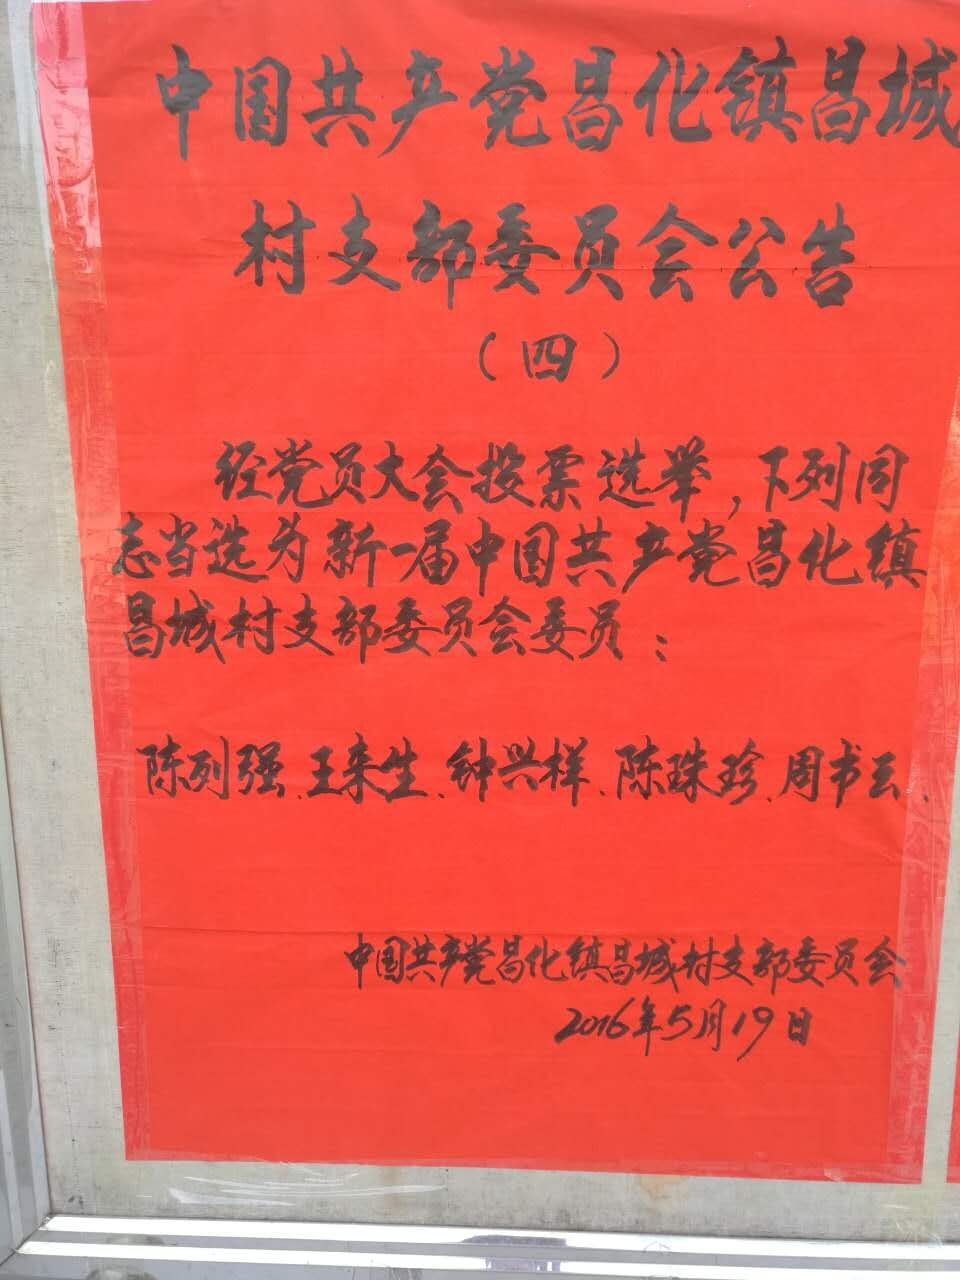 中国共产党昌化镇昌城
村支部委员会公告
（四）
经党员大会投票选举,下列同
志当选为新一届中国共产党昌化镇
昌城村支部委员会委员：
陈列强、王来生、钟兴样、陈珠珍、周书云、
中国共产党昌化镇昌城村支部委员会
2016年5月19日